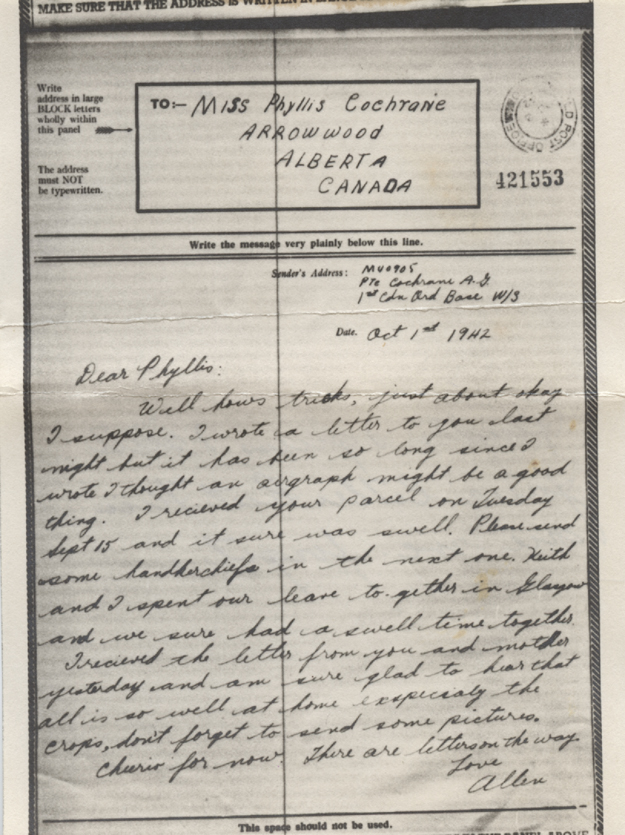 MAKE SURE THAT THE ADDRESS IS WRITTEN IN
Write
address in large
BLOCK letters
wholly within
this panel
The address
must NOT
be typewritten.
TO:- MISS Phyllis Cochrane
ARROWWOOD
ALBERTA
CANADA
POST OFFICE
421553
Write the message very plainly below this line.
Sender's Address: M40905
Pte Cochrane A.G.
1st Cdn Ord Base W/S
Date. Oct 1st 1942
Dear Phyllis:
Well hows tricks, just about okay
I suppose. I wrote a letter to you last
night but it has been so long since I
wrote I thought an airgraph might be a good
thing. I recieved your parcel on Tuesday
Sept 15 and it sure was swell. Please send
some handkerchiefs in the next one. Keith
and I spent our leave to-gether in Glasgow
and we sure had a swell time together.
I recieved the letter from you and mother
yesterday and am sure glad to hear that
all is so well at home expecialy the
crops, don't forget to send some pictures.
Cheerio for now. There are letters on the way
Love
Allen
This space should not be used.